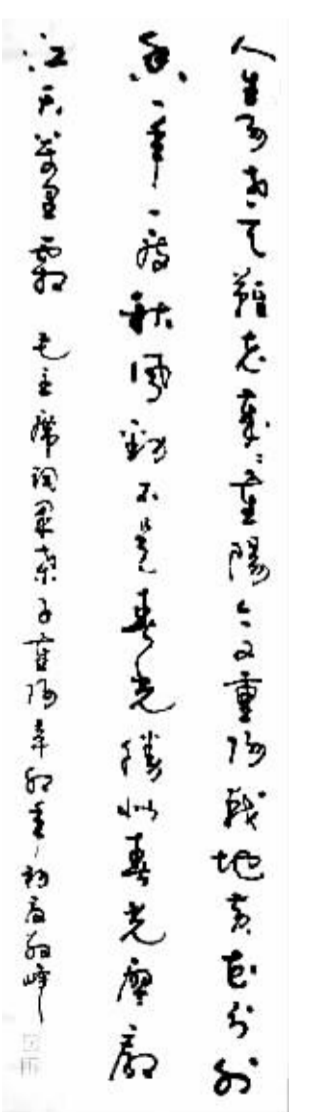 人生易老天難老歲歲重陽今又重陽戰地黄花分外
香一年一度秋風勁不是春光勝似春光寥廓
江天萬里霜 毛主席詞采桑子重陽辛卯